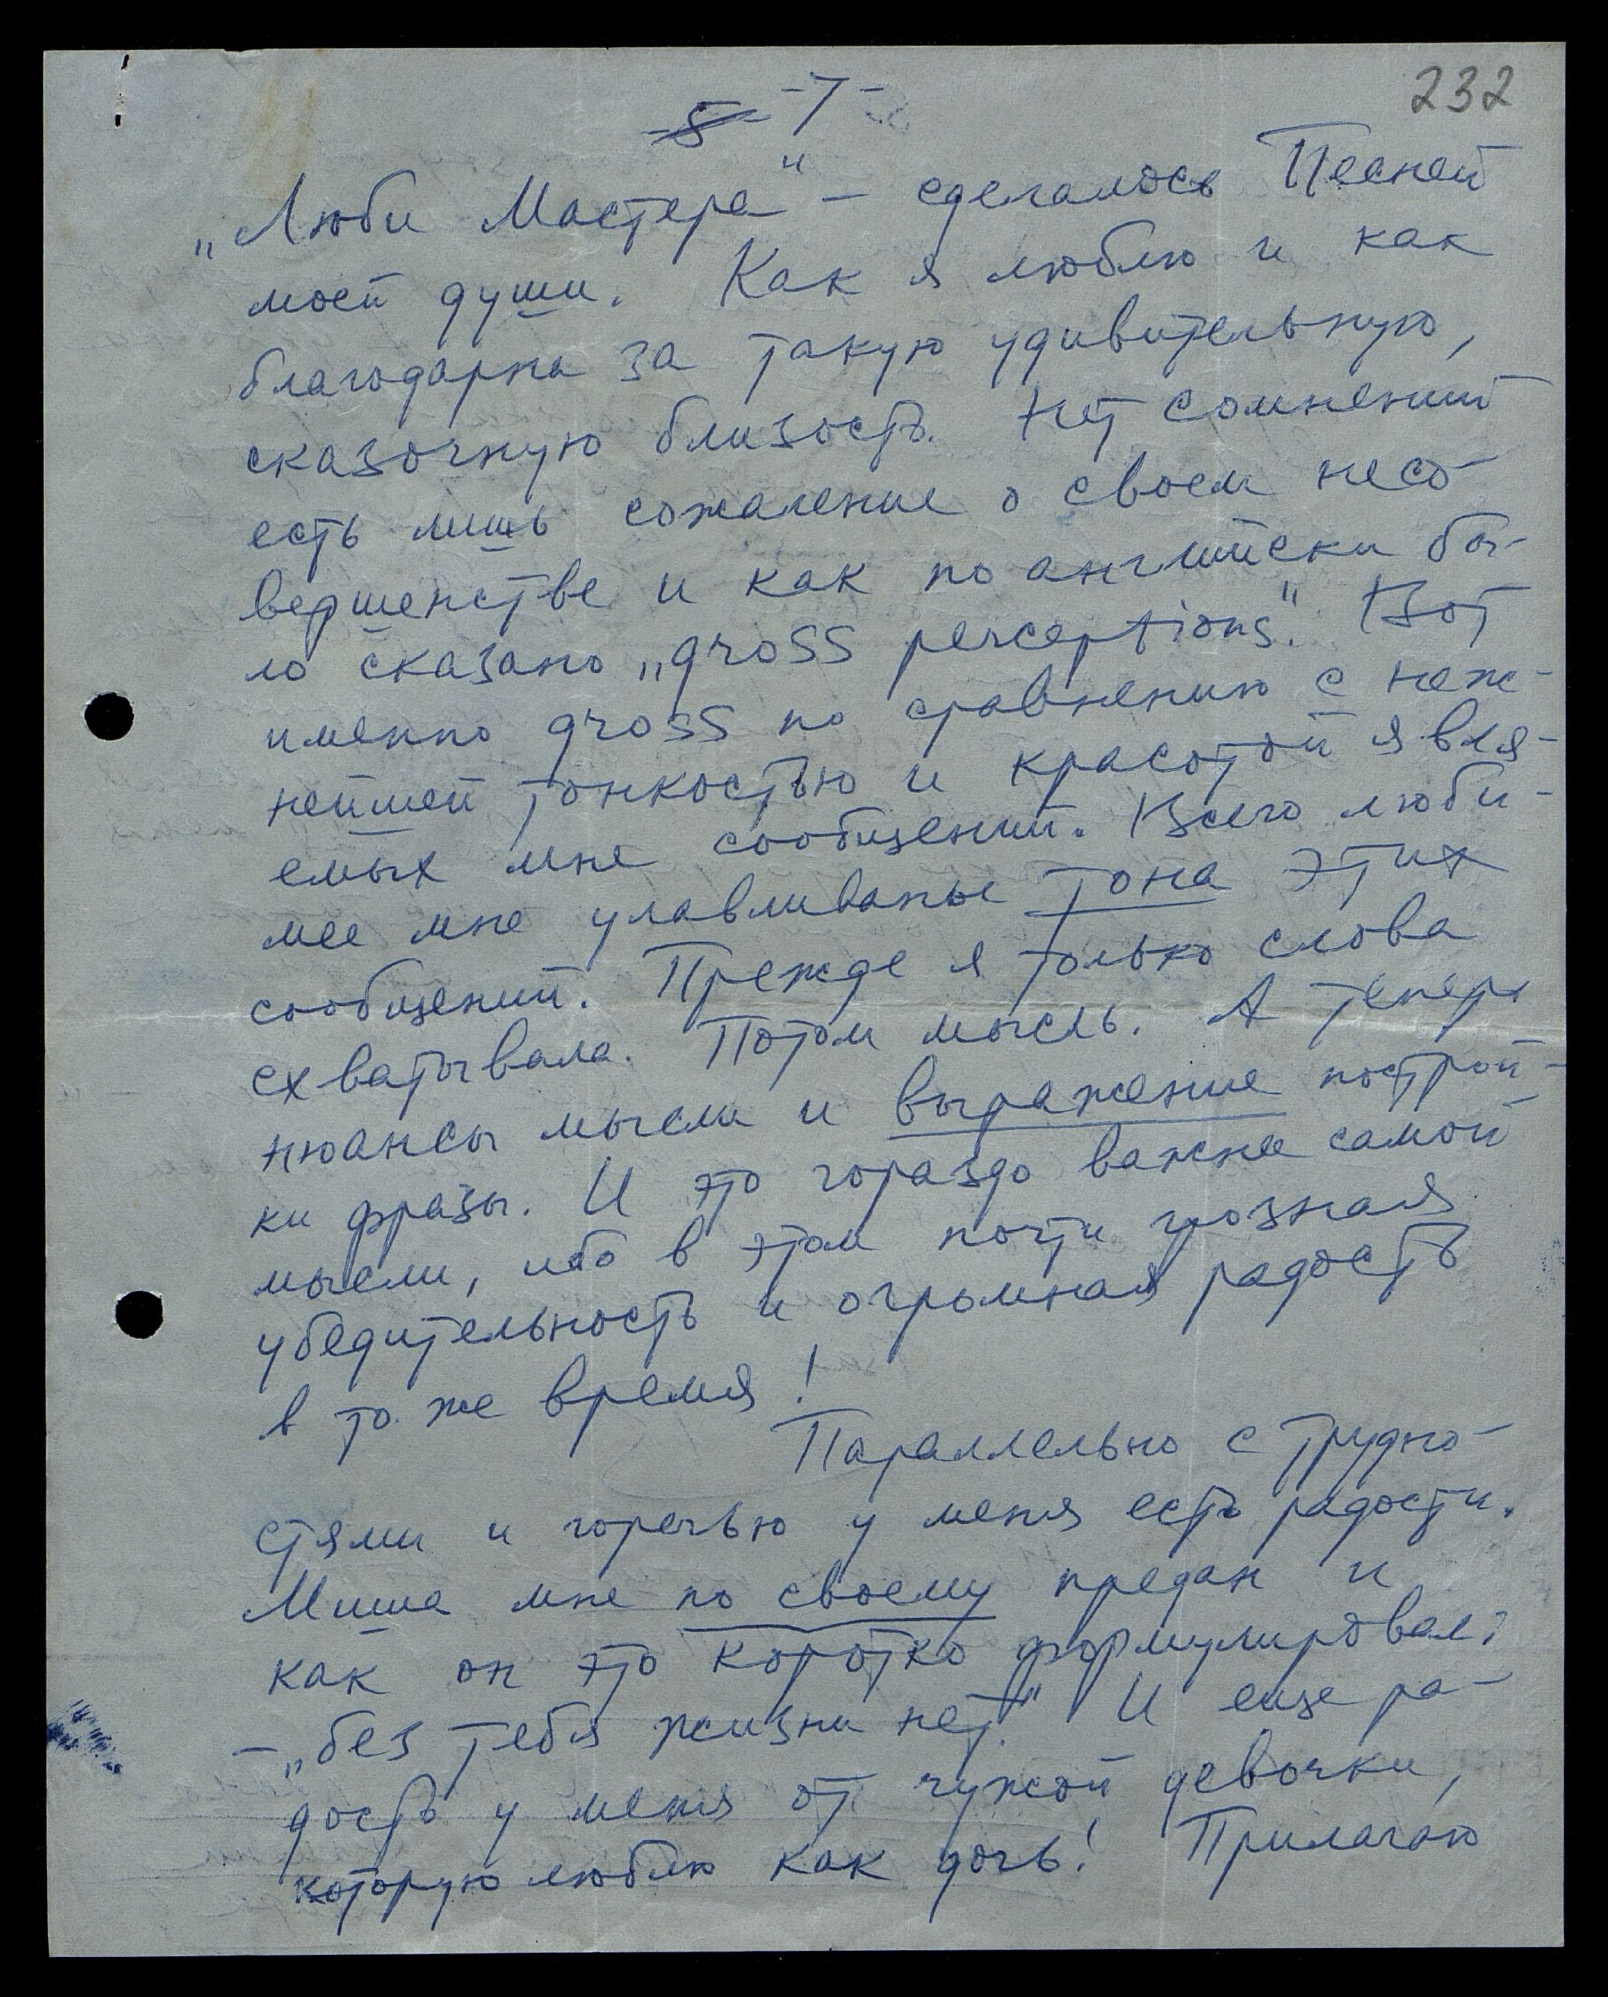 232
-5- -7-
„Люби Мастера“ – сделалось Песней
моей души. Как я люблю и как
благодарна за такую удивительную,
сказочную близость. Нет сомнений
есть лишь сожаление о своем несо-
вершенстве и как по английски бы-
ло сказано „gross perceptions“. Вот
именно gross по сравнению с неж-
нейшей тонкостью и красотой явля-
емых мне сообщений. Всего люби-
мее мне улавливанье тона этих
сообщений. Прежде я только слова
схватывала. Потом мысль. А теперь
нюансы мысли и выражение построй-
ки фразы. И это гораздо важнее самой
мысли, ибо в этом почти грозная
убедительность и огромная радость
в то же время!
Параллельно с трудно-
стями и горечью у меня есть радости.
Миша мне по своему предан и
как он это коротко формулировал:
– „без тебя жизни нет“. И еще ра-
дость у меня от чужой девочки,
которую люблю как дочь! Прилагаю